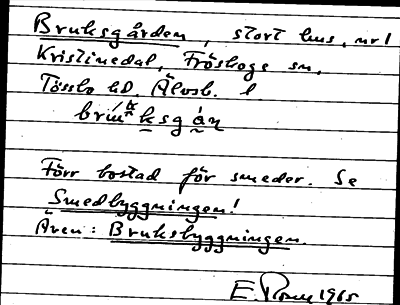 Bruksgården, stort hus, nr 1
Kristinedal, Fröskogs sn,
Tössbo hd. Älvsb. l
Förr bostad för smeder. Se
Smedbyggningen!
Även: Bruksbyggningen.
E. 1965